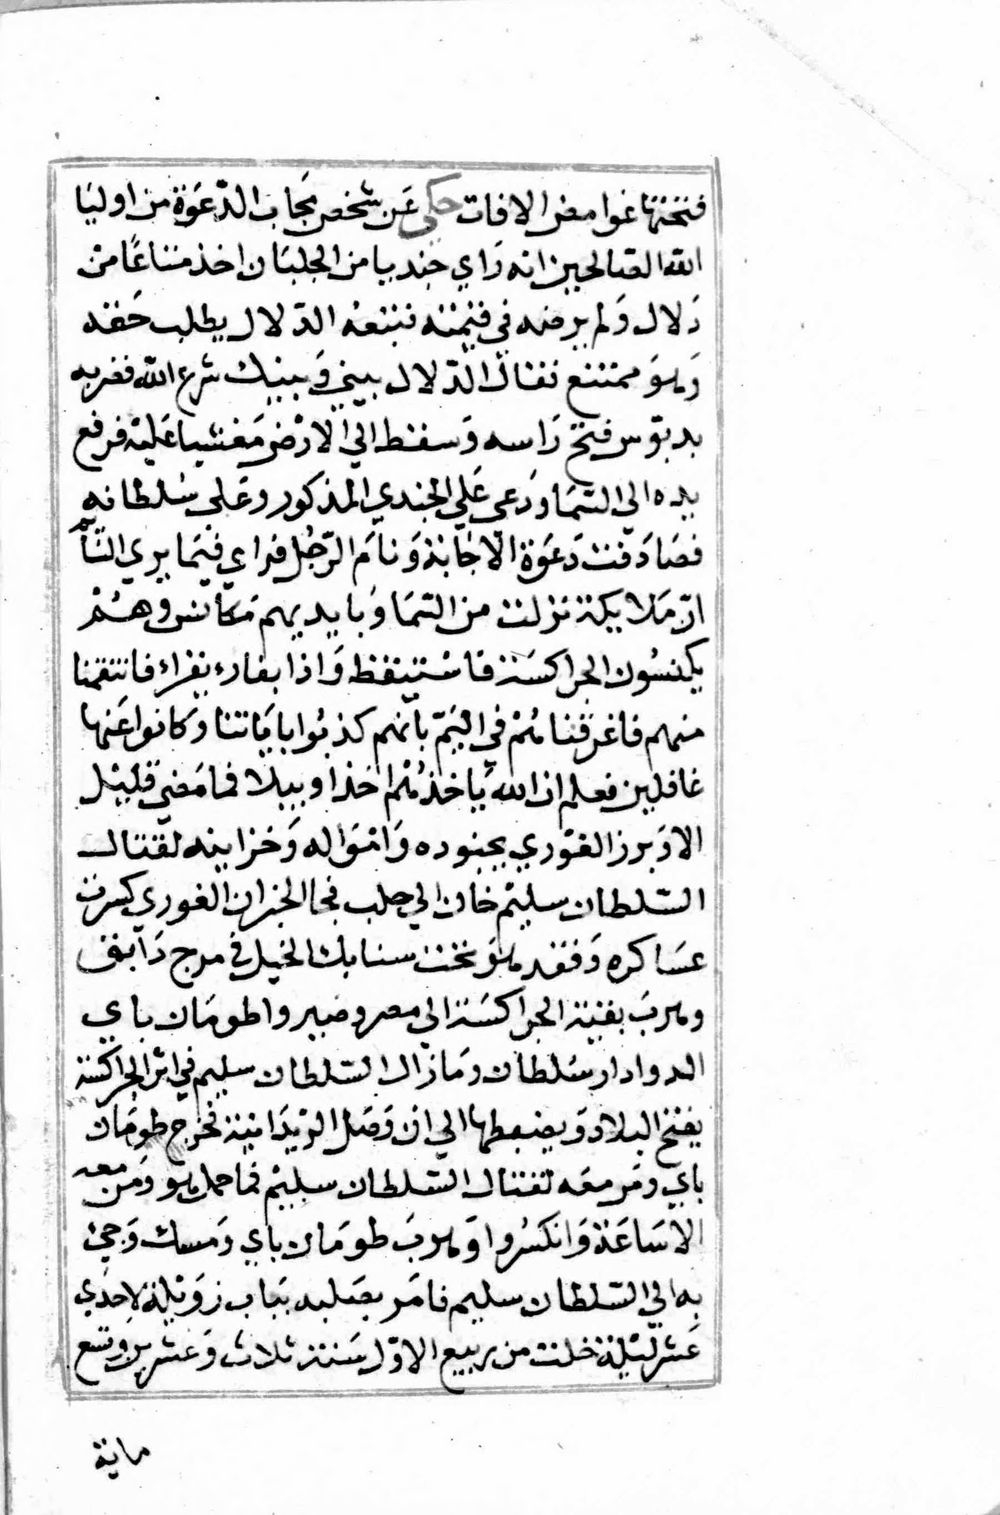 فتحتها غوامض الافات حكى عن شخص مجاب الدعوة من اوليا
الله الصالحين انه راي جنديا من الجلبان اخذ متاعا من
دلال ولم يرضه في قيمته فتبعه الدلال يطلب حقه
وهو ممتنع فقال الدلال بيني وبينك شرع الله فضربه
بدبوس فتح راسه وسقط الي الارض مغشيا عليه فرفع
يده الي السما ودعى علي الجندي المذكور وعلى سلطانه
فصادفت دعوة الاجابة ونام الرجل فراي فيما يري النايم
ان ملايكة نزلت من السما وبايديهم مكانس وهم
يكنسون الجراكسة فاستيقظ واذا بقارء يقراء فانتقمنا
منهم فاغرقناهم في اليم بانهم كذبوا باياتنا وكانوا عنها
غافلين فعلم ان الله ياخذهم اخذا وبيلا فما مضي قليل
الا وبرز الغوري بجنوده وامواله وخزاينه لقتال
السلطان سليم خان الي حلب فجا الخبر ان الغوري كسرت
عساكره وفقد هو تحت سنابك الخيل في مرج دابق
وهرب بقية الجراكسة الي مصر وصيروا طومان باي
الدوادار سلطان وما زال السلطان سليم في اثر الجراكسة
يفتح البلاد ويضبطها الي ان وصل الريدانية فخرج طومان
باي ومن معه لقتال السلطان سليم فما حمل هو ومن معه
الا ساعة وانكسروا وهرب طومان باي ومسك وجئ
به الي السلطان سليم فامر بصلبه بباب زويلة لاحدي
عشر ليلة خلت من ربيع الاول سنة ثلاث وعشرين وتسع
ماية